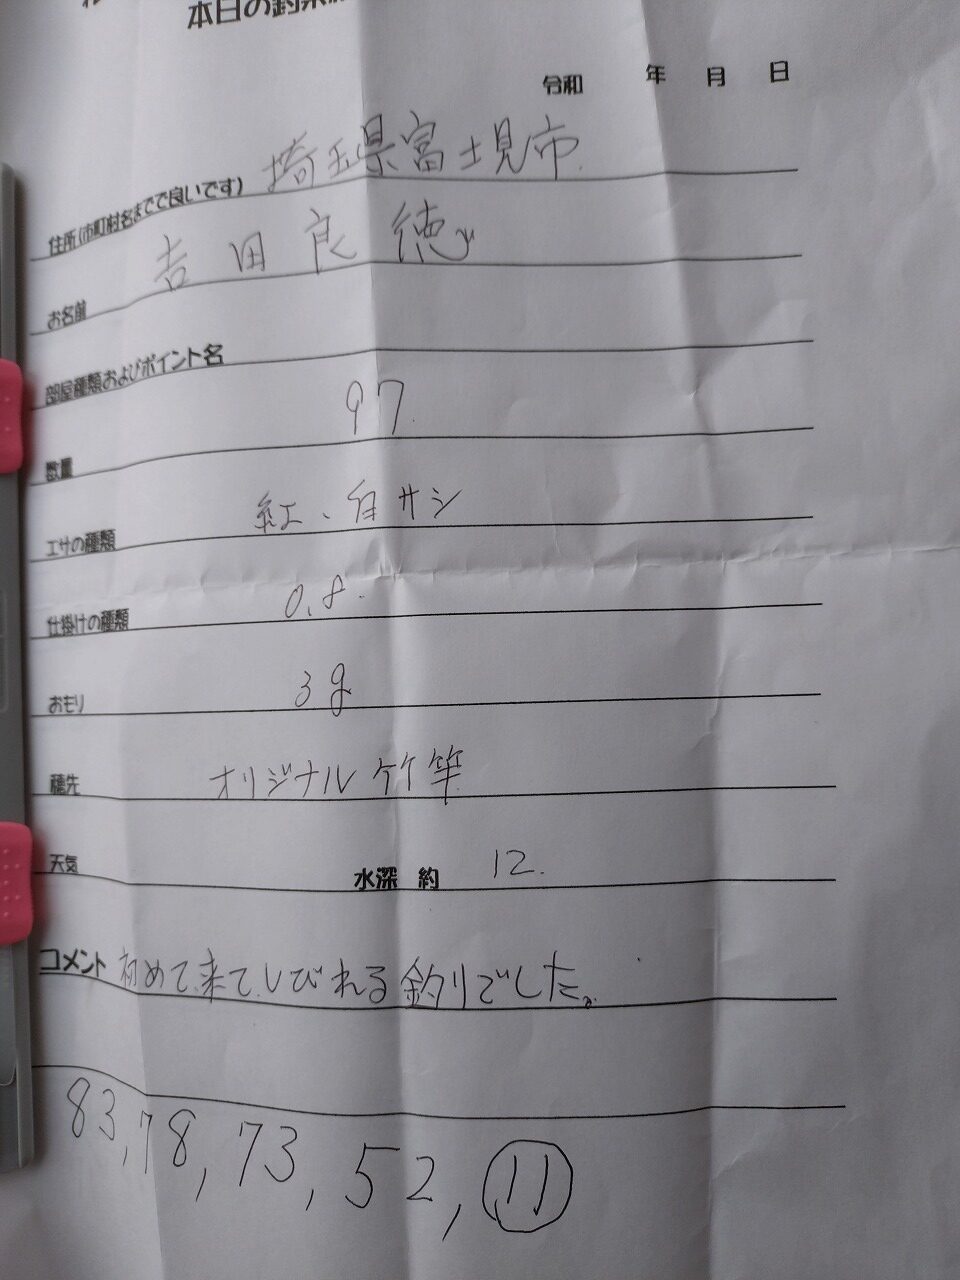 本日の釣果
令和 年 月 日
住所(市町村名までで良いです) 埼玉県富士見市
お名前 吉田良徳
部屋種類およびポイント名
数量 97
エサの種類 紅、白サシ
仕掛けの種類 0.8
おもり 3g
穂先 オリジナル竹竿
天気 水深 約 12
コメント 初めて来てしびれる釣りでした。
83,78,73,52,11